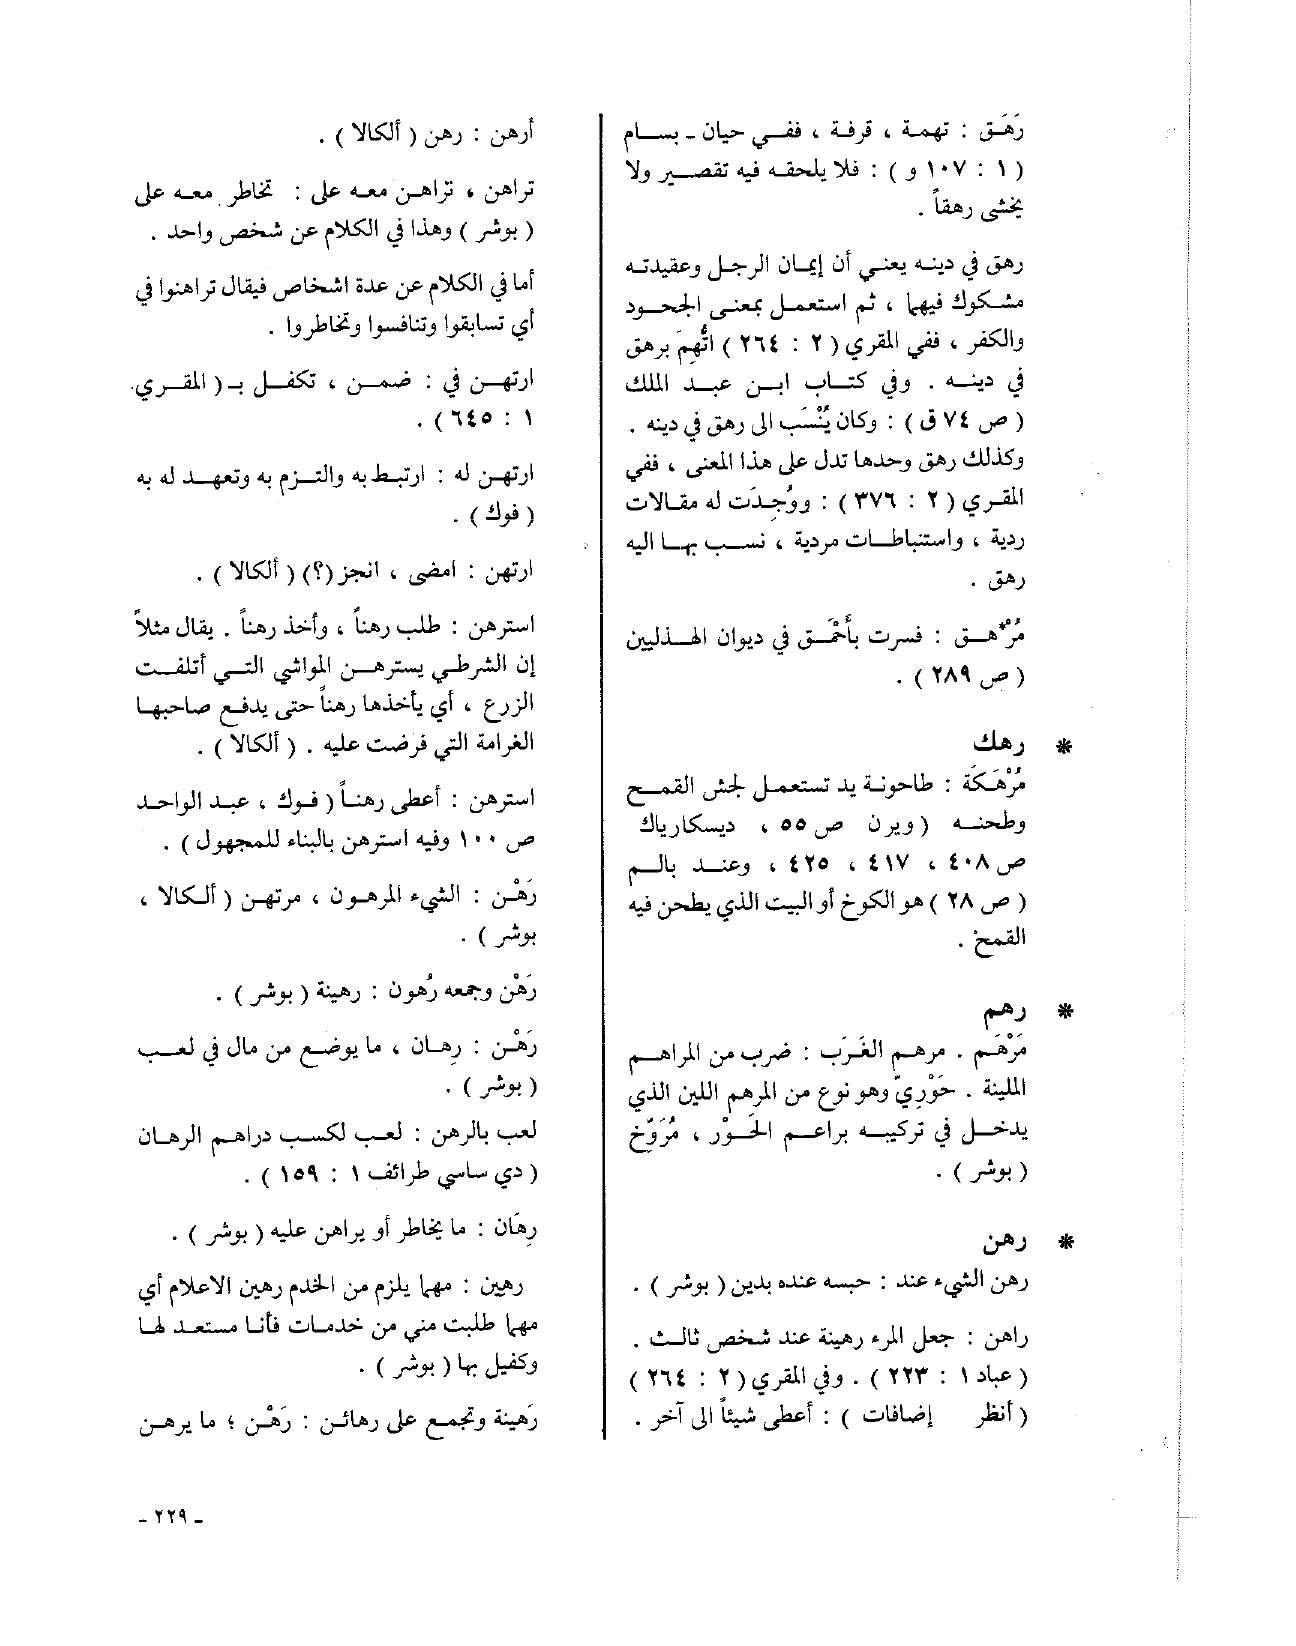 رَهَق : تهمة ، قرفة ، ففي حيان - بسام
( ١ : ١٠٧ و ) : فلا يلحقه فيه تقصير ولا
يخشى رهقاً .
رهق في دينه يعني أن إيمان الرجل وعقيدته
مشكوك فيها ، ثم استعمل بمعنى الجحود
والكفر ، ففي المقري ( ٢ : ٢٦٤ ) اتُّهِمَ برهق
في دينه . وفي كتاب ابن عبد الملك
( ص ٧٤ ق ) : وكان يُنْسَب الى رهق في دينه .
وكذلك رهق وحدها تدل على هذا المعنى ، ففي
المقري ( ٢ : ٣٧٦ ) : ووُجِدَت له مقالات
ردية ، واستنباطات مردية ، نسب بها اليه
رهق .
مُرْهَق : فسرت بأَحْمَق في ديوان الهذليين
( ص ٢٨٩ ) .
* رهك
مُرْهَكَة : طاحونة يد تستعمل لجش القمح
وطحنه ( ويرن ص ٥٥ ، ديسكارياك
ص ٤٠٨ ، ٤١٧ ، ٤٢٥ ، وعند بالم
( ص ٢٨ ) هو الكوخ أو البيت الذي يطحن فيه
القمح .
* رهم
مَرْهَم . مرهم الغَرَب : ضرب من المراهم
الملينة . حَوْرِيّ وهو نوع من المرهم اللين الذي
يدخل في تركيبه براعم الحَوْر ، مُرَوّخ
( بوشر ) .
* رهن
رهن الشيء عند : حبسه عنده بدين ( بوشر ) .
راهن : جعل المرء رهينة عند شخص ثالث .
( عباد ١ : ٢٢٣ ) . وفي المقري ( ٢ : ٢٦٤ )
( أنظر إضافات ) : أعطى شيئاً الى آخر .
أرهن : رهن ( ألكالا ) .
تراهن ، تراهن معه على : تخاطر معه على
( بوشر ) وهذا في الكلام عن شخص واحد .
أما في الكلام عن عدة اشخاص فيقال تراهنوا في
أي تسابقوا وتنافسوا وتخاطروا .
ارتهن في : ضمن ، تكفل بـ ( المقري
١ : ٦٤٥ ) .
ارتهن له : ارتبط به والتزم به وتعهد له به
( فوك ) .
ارتهن : امضى ، انجز (؟) ( ألكالا ) .
استرهن : طلب رهناً ، وأخذ رهناً . يقال مثلاً
إن الشرطي يسترهن المواشي التي أتلفت
الزرع ، أي يأخذها رهناً حتى يدفع صاحبها
الغرامة التي فرضت عليه . ( ألكالا ) .
استرهن : أعطى رهناً ( فوك ، عبد الواحد
ص ١٠٠ وفيه استرهن بالبناء للمجهول ) .
رَهْن : الشيء المرهون ، مرتهن ( ألكالا ،
بوشر ) .
رَهْن وجمعه رُهون : رهينة ( بوشر ) .
رَهْن : رِهان ، ما يوضع من مال في لعب
( بوشر ) .
لعب بالرهن : لعب لكسب دراهم الرهان
( دي ساسي طرائف ١ : ١٥٩ ) .
رِهَان : ما يخاطر أو يراهن عليه ( بوشر ) .
رهين : مهما يلزم من الخدم رهين الاعلام أي
مهما طلبت مني من خدمات فأنا مستعد لها
وكفيل بها ( بوشر ) .
رَهينة وتجمع على رهائن : رَهْن ؛ ما يرهن
- ٢٢٩ -